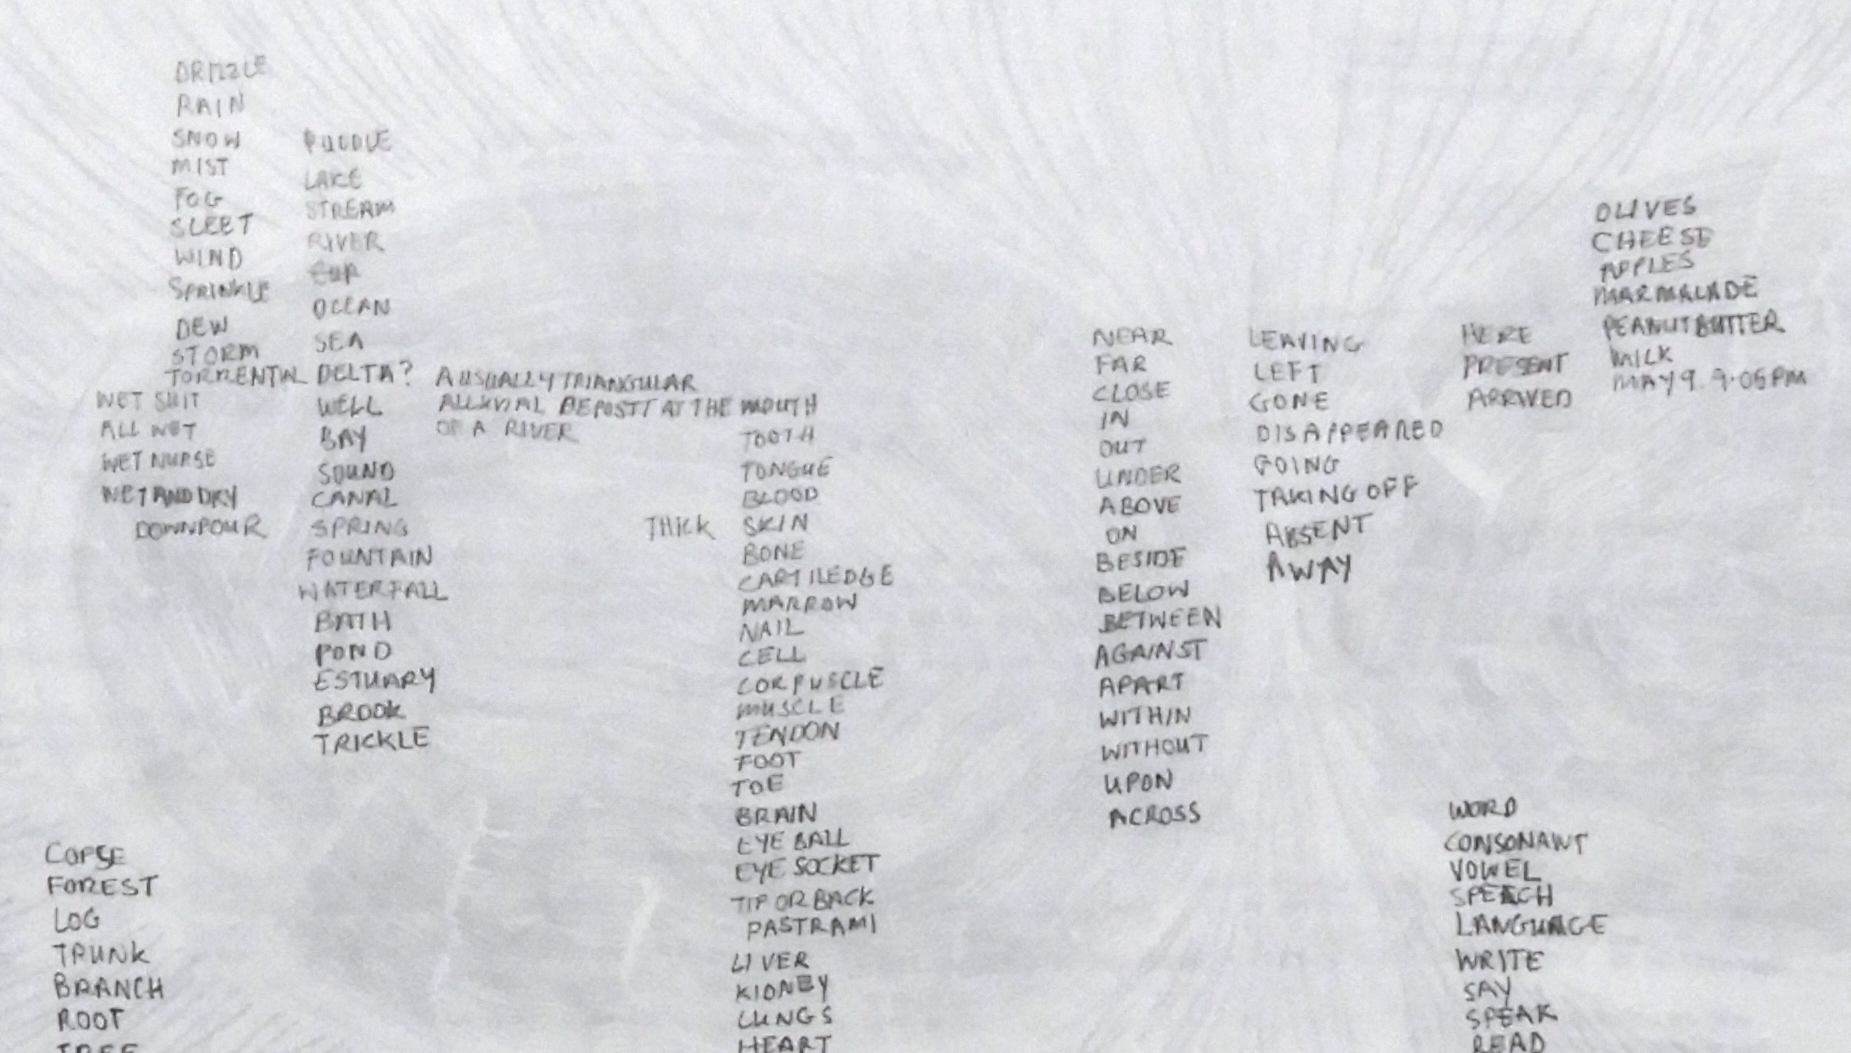 DRIZZLE
RAIN
SNOW
MIST
FOG
SLEET
WIND
SPRINKLE
DEW
STORM
TORRENTIAL
WET SUIT
ALL WET
WET NURSE
WET AND DRY
DOWNPOUR
PUDDLE
LAKE
STREAM
RIVER
CUP
OCEAN
SEA
DELTA? A USUALLY TRIANGULAR
ALLUVIAL DEPOSIT AT THE MOUTH
OF A RIVER
WELL
BAY
SOUND
CANAL
SPRING
FOUNTAIN
WATERFALL
BATH
POND
ESTUARY
BROOK
TRICKLE
TOOTH
TONGUE
BLOOD
THICK SKIN
BONE
CARTILEDGE
MARROW
NAIL
CELL
CORPUSCLE
MUSCLE
TENDON
FOOT
TOE
BRAIN
EYE BALL
EYE SOCKET
TIP OR BACK
PASTRAMI
LIVER
KIDNEY
LUNGS
HEART
NEAR
FAR
CLOSE
IN
OUT
UNDER
ABOVE
ON
BESIDE
BELOW
BETWEEN
AGAINST
APART
WITHIN
WITHOUT
UPON
ACROSS
LEAVING
LEFT
GONE
DISAPPEARED
GOING
TAKING OFF
ABSENT
AWAY
HERE
PRESENT
ARRIVED
OLIVES
CHEESE
APPLES
MARMALADE
PEANUT BUTTER
MILK
MAY 9. 9.05 PM
COPSE
FOREST
LOG
TRUNK
BRANCH
ROOT
TREE
WORD
CONSONANT
VOWEL
SPEECH
LANGUAGE
WRITE
SAY
SPEAK
READ